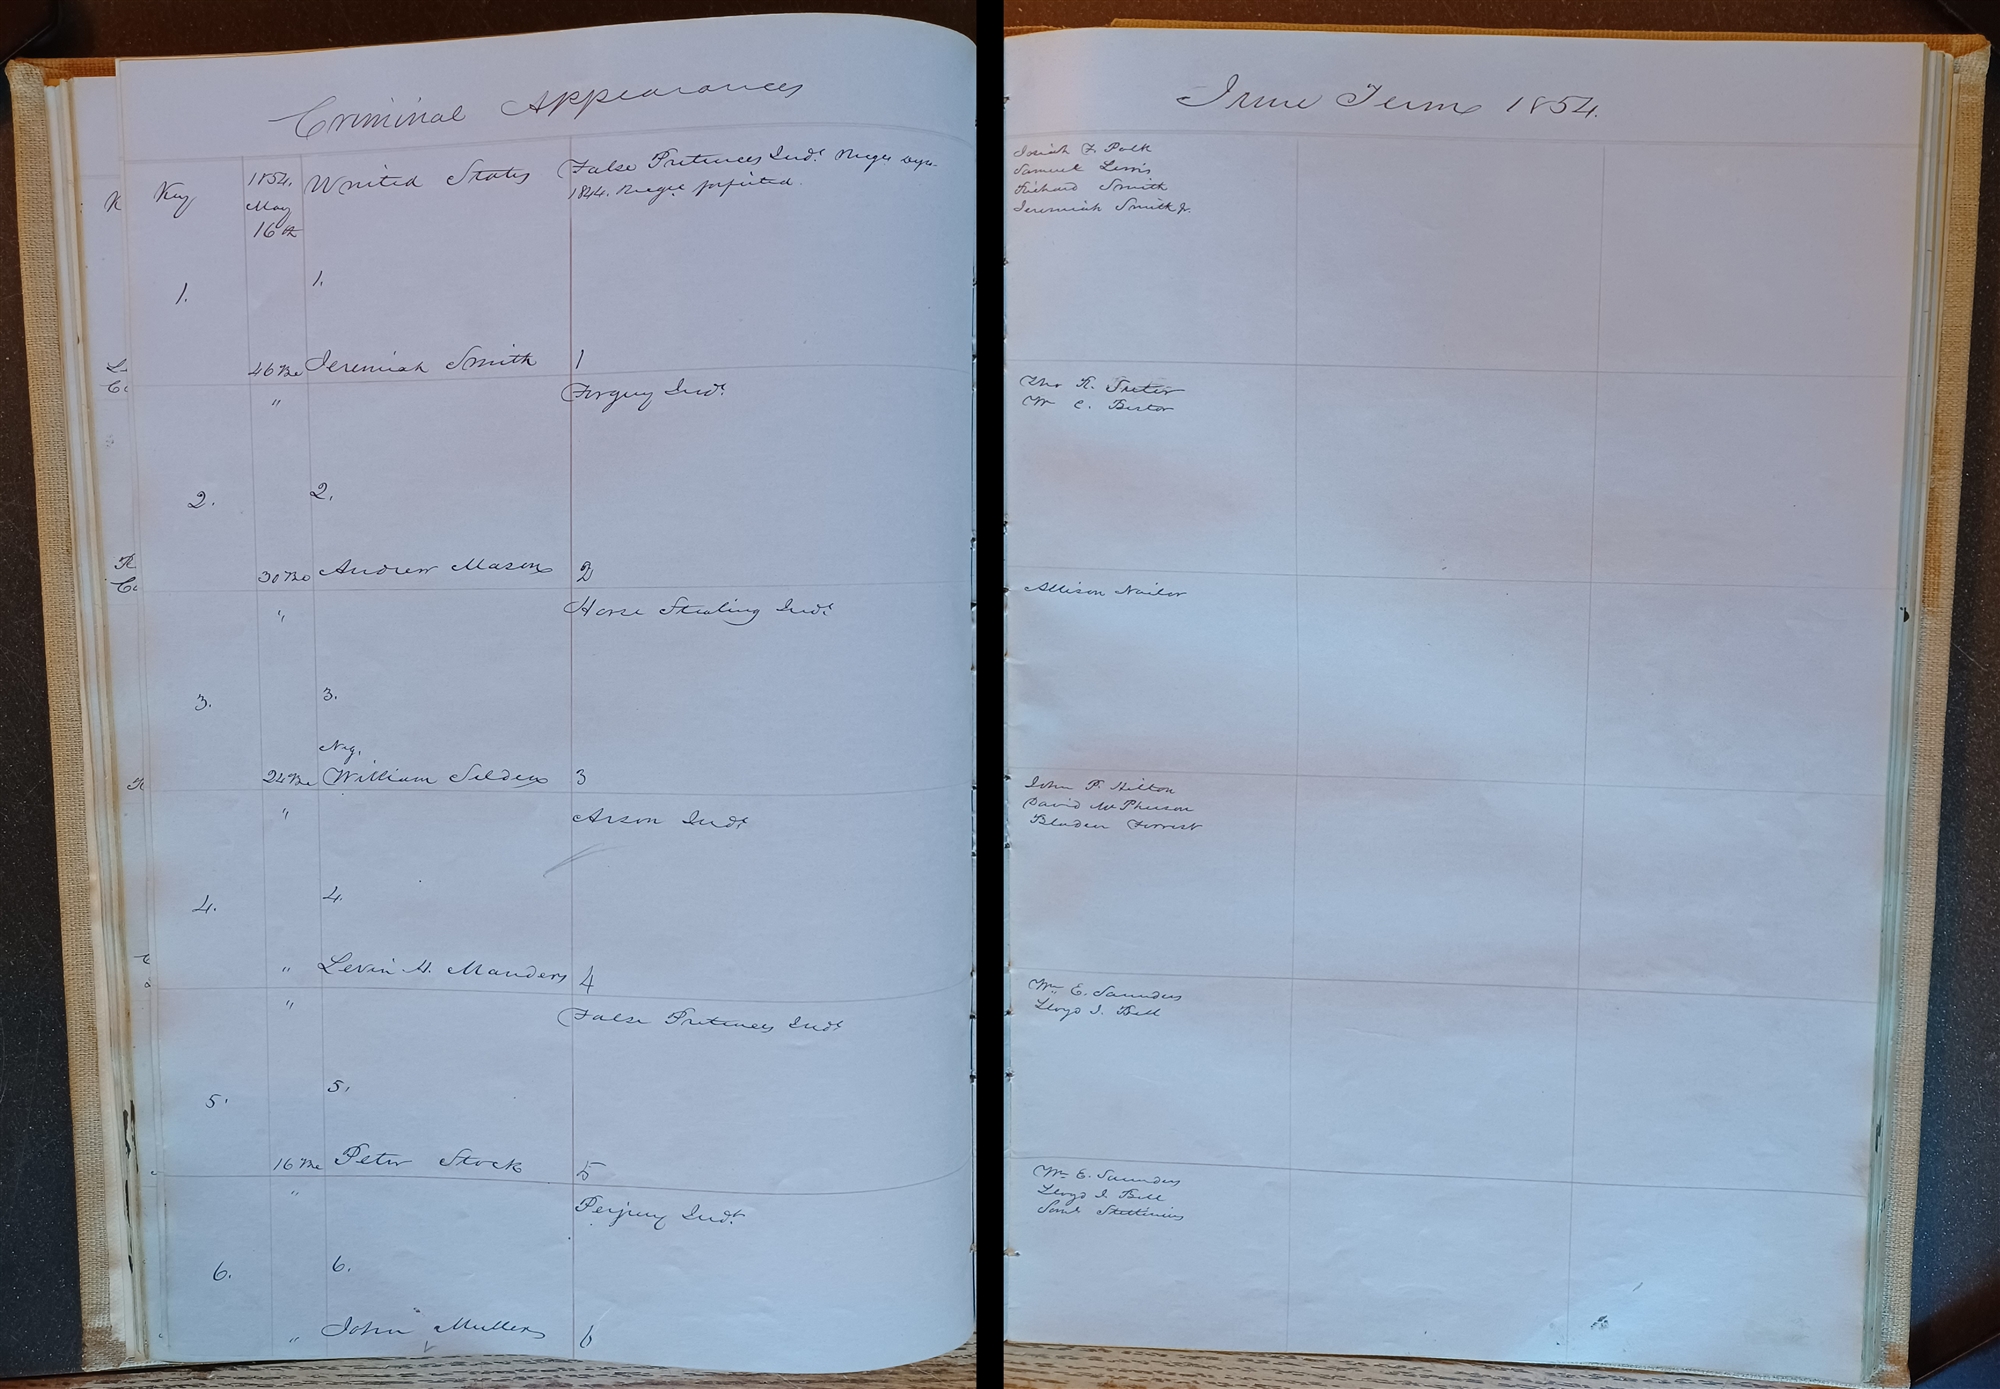 Criminal Appearances
Key
1854.
May
16th
United States
False Pretences Indt.
1844. forfeited.
1.
1.
46
Jeremiah Smith
1
"
Forgery Indt.
2.
2.
30
Andrew Mason
2
"
Horse Stealing Indt.
3.
3.
Neg.
24
William Selden
3
"
Arson Indt
4.
4.
"
Levin H. Manders
4
"
False Pretences Indt
5.
5.
16
Peter Stock
5
"
Perjury Indt.
6.
6.
"
John Mullers
6
June Term 1854.
Josiah F Polk
Samuel Lewis
Richard Smith
Jeremiah Smith Jr.
Tho K. Suter
Wm C. Bestor
Allison Nailor
John P. Hilton
David McPherson
Bladen Forrest
Wm E. Saunders
Lloyd J. Bell
Wm E. Saunders
Lloyd J. Bell
Saml Stettinius